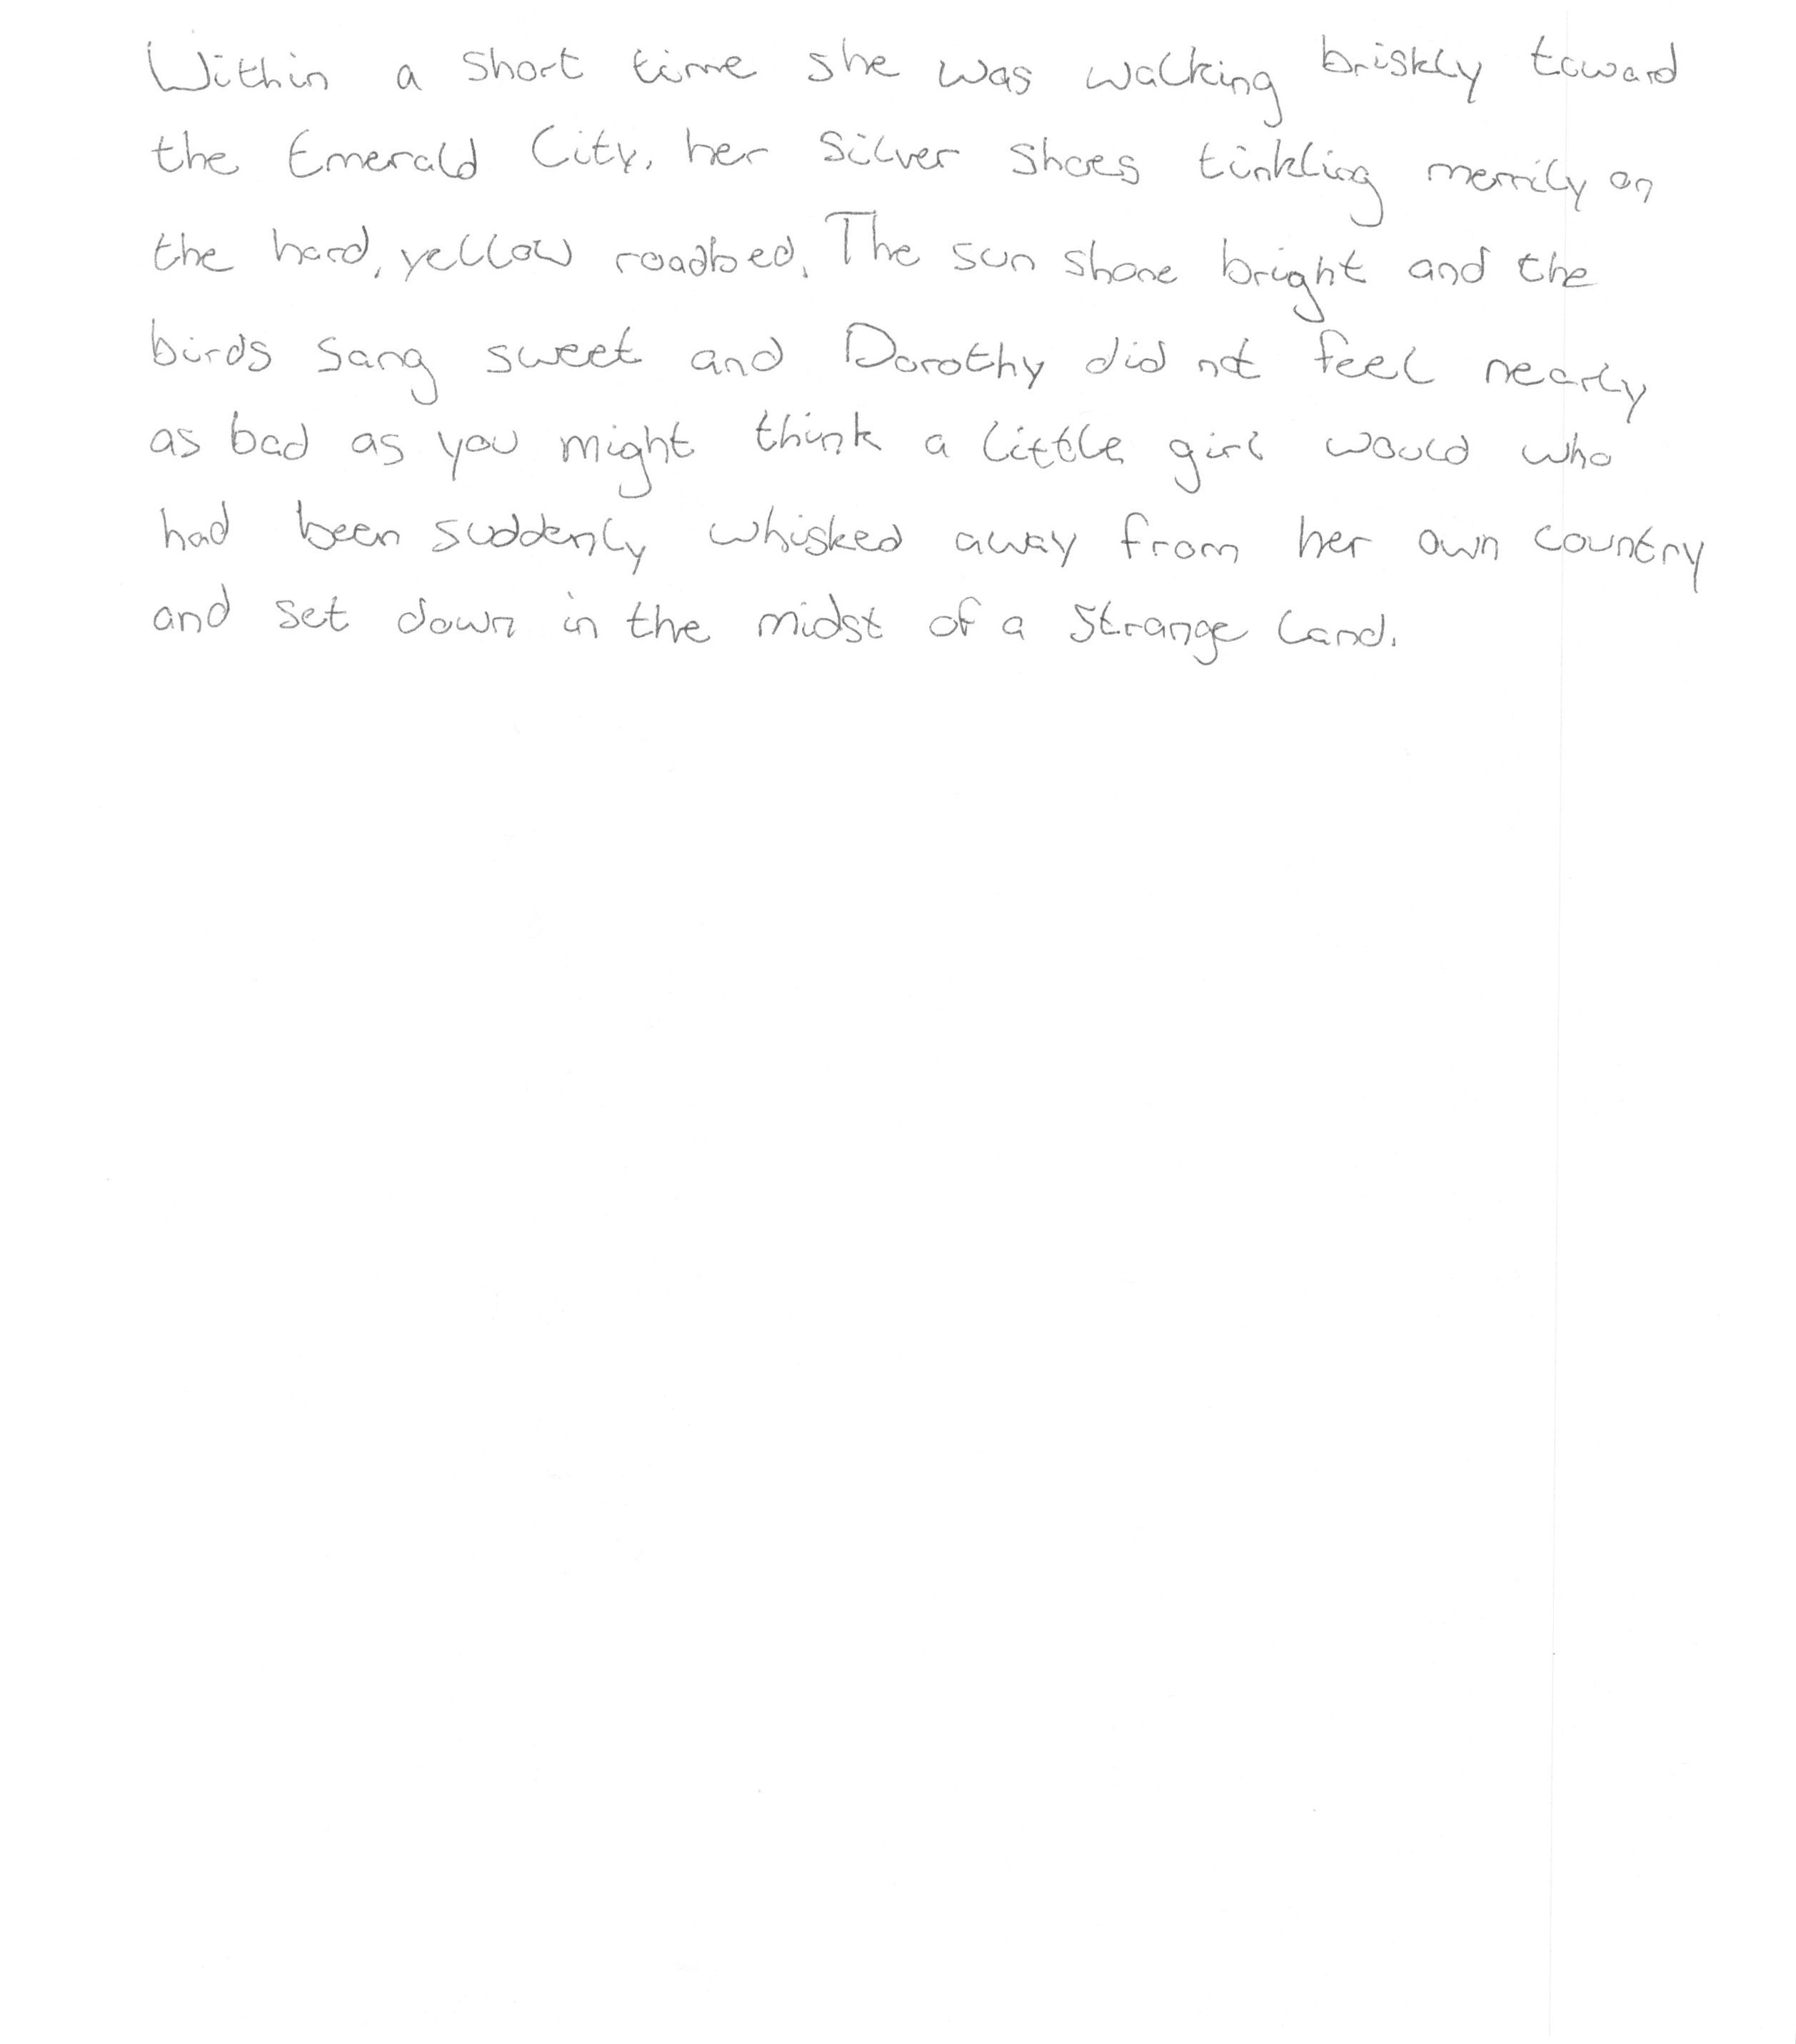 Within a short time she was walking briskly toward
the Emerald City, her Silver Shoes tinkling merrily on
the hard, yellow roadbed. The sun shone bright and the
birds sang sweet and Dorothy did not feel nearly
as bad as you might think a little girl would who
had been suddenly whisked away from her own country
and set down in the midst of a strange land.